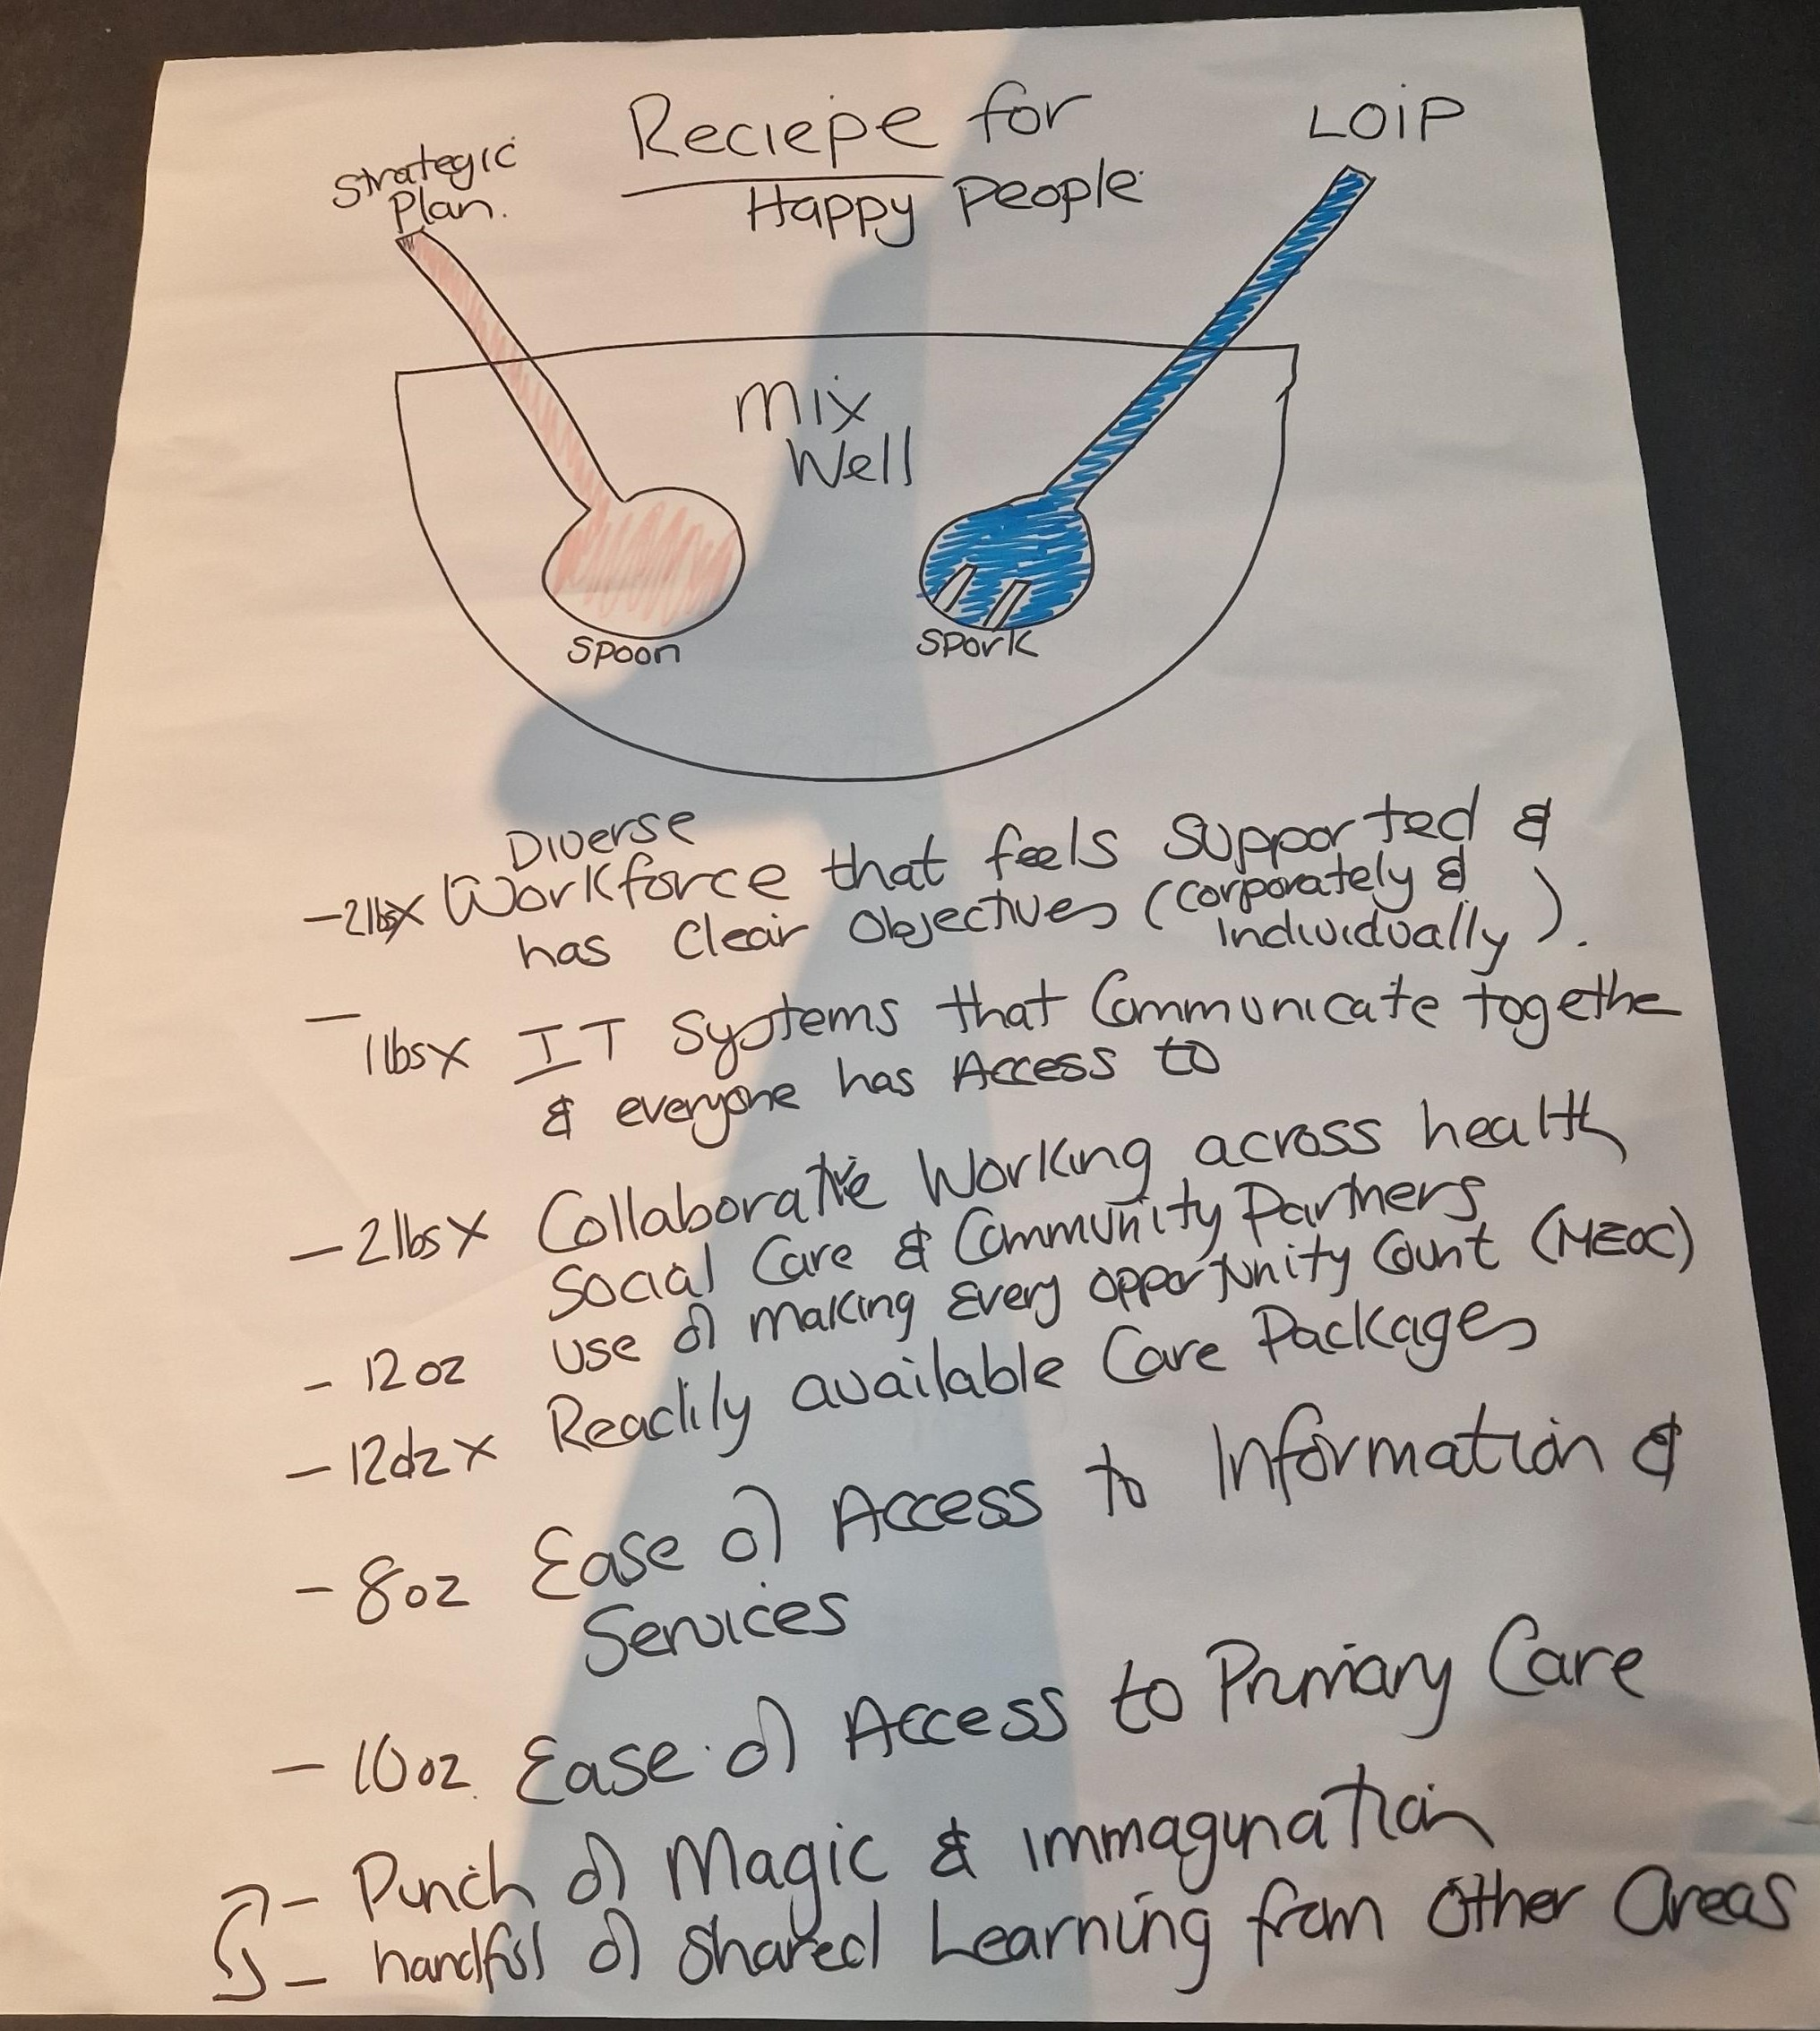 Reciepe for
Happy People
Strategic
Plan.
LOIP
Mix
Well
Spoon
Spork
Diverse
- 2lbs x Workforce that feels Supported &
has Clear Objectives (Corporately &
Individually).
- 1lbs x IT Systems that Communicate togethe
& everyone has Access to
- 2lbs x Collaborative Working across health
Social Care & Community Partners
- 12oz use of making Every opportunity Count (MEOC)
- 12oz x Readily available Care Packages
- 8oz Ease of Access to Information &
Services
- 10oz Ease of Access to Primary Care
- Punch of Magic & immagination
- handful of Shared Learning from Other Areas